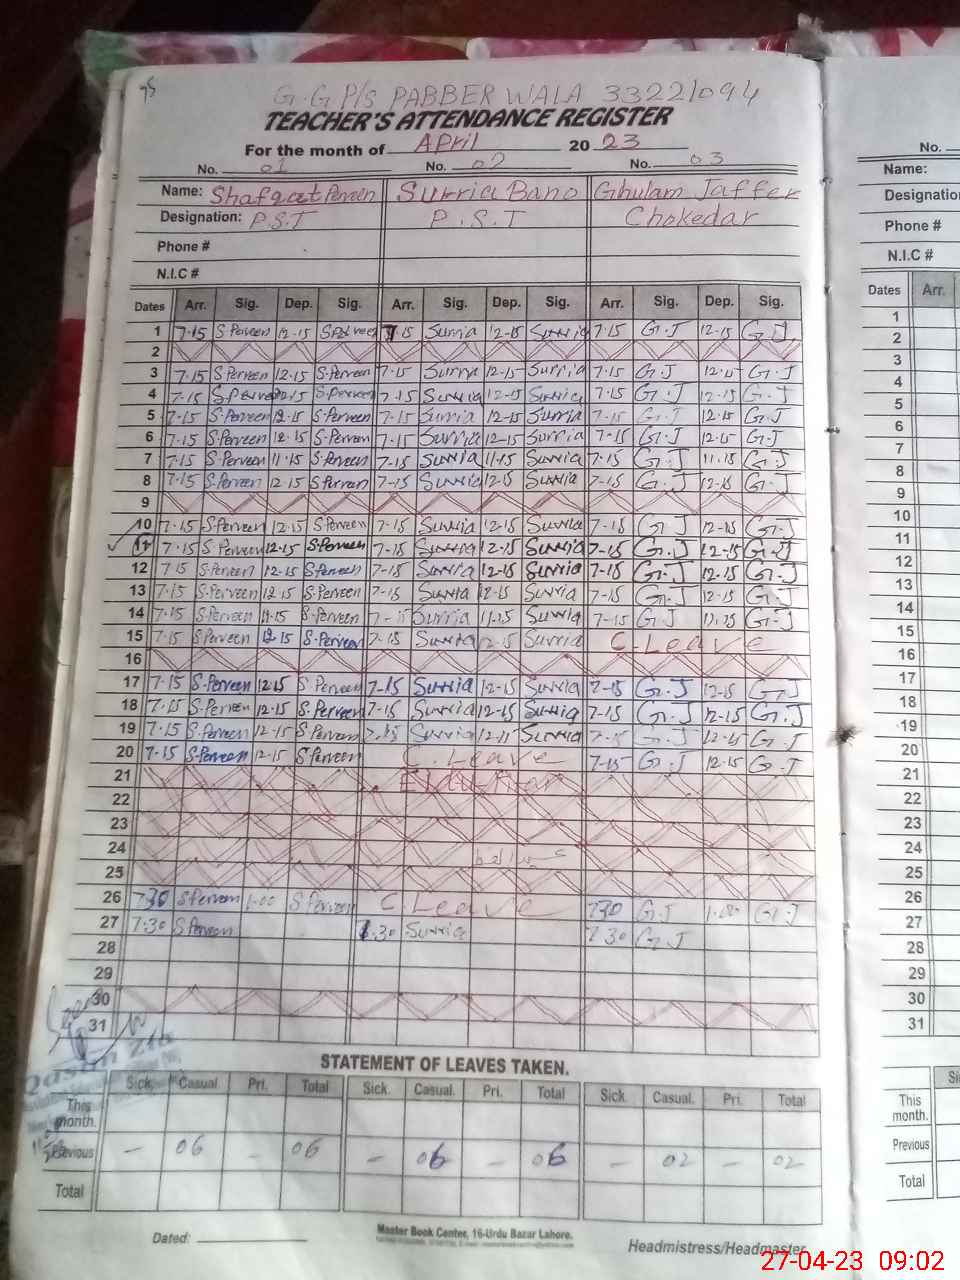 G.G P/S PABBER WALA 33221094
TEACHER'S ATTENDANCE REGISTER
For the month of April 20 23
No. 01 No. 02 No. 03 No.
Name: Shafqat Perveen Surria Bano Ghulam Jaffer Name:
Designation: P.S.T P.S.T Chokedar
Phone # Phone #
N.I.C # N.I.C #
Dates Arr. Sig. Dep. Sig. Arr. Sig. Dep. Sig. Arr. Sig. Dep. Sig. Dates Arr.
1 7.15 S Perveen 12.15 S Perveen 7.15 Surria 12-15 Surria 7.15 G.J 12.15 G.J 1
2 2
3 7.15 S Perveen 12.15 S.Perveen 7.15 Surria 12-15 Surria 7.15 G.J 12.15 G.J 3
4 7.15 S.Perveen 12.15 S.Perveen 7.15 Surria 12-15 Surria 7.15 G.J 12.15 G.J 4
5 7.15 S.Perveen 12.15 S.Perveen 7-15 Surria 12-15 Surria 7-15 G.J 12.15 G.J 5
6 7.15 S.Perveen 12.15 S.Perveen 7-15 Surria 12-15 Surria 7-15 G.J 12.15 G.J 6
7 7.15 S.Perveen 11.15 S.Perveen 7-15 Surria 11-15 Surria 7-15 G.J 11.15 G.J 7
8 7.15 S.Perveen 12.15 S.Perveen 7-15 Surria 12-15 Surria 7-15 G.J 12-15 G.J 8
9 9
10 7.15 S Perveen 12.15 S.Perveen 7-15 Surria 12-15 Surria 7-15 G.J 12-15 G.J 10
11 7.15 S Perveen 12.15 S.Perveen 7-15 Surria 12-15 Surria 7-15 G.J 12-15 G.J 11
12 7.15 S.Perveen 12.15 S.Perveen 7-15 Surria 12-15 Surria 7-15 G.J 12.15 G.J 12
13 7.15 S.Perveen 12.15 S.Perveen 7-15 Surria 12-15 Surria 7-15 G.J 12-15 G.J 13
14 7.15 S.Perveen 11.15 S.Perveen 7-15 Surria 11.15 Surria 7-15 G.J 11.15 G.J 14
15 7.15 S.Perveen 12.15 S.Perveen 7-15 Surria 12-15 Surria C.Leave 15
16 16
17 7.15 S.Perveen 12.15 S Perveen 7-15 Surria 12-15 Surria 7-15 G.J 12-15 G.J 17
18 7.15 S.Perveen 12-15 S.Perveen 7-15 Surria 12-15 Surria 7-15 G.J 12-15 G.J 18
19 7.15 S.Perveen 12-15 S.Perveen 7.15 Surria Surria 7-15 G.J 12.15 G.J 19
20 7-15 S.Perveen 12.15 S.Perveen C.Leave 7-15 G.J 12.15 G.J 20
21 21
22 22
23 23
24 24
25 25
26 7.30 S Perveen 1-00 S Perveen C.Leave 7.30 G.J 1.00 G.J 26
27 7.30 S Perveen 7.30 Surria 7.30 G.J 27
28 28
29 29
30 30
31 31
Qasim Zia
STATEMENT OF LEAVES TAKEN.
Sick. Casual Pri. Total Sick. Casual. Pri. Total Sick. Casual. Pri. Total
This month. This month.
Previous - 06 06 - 06 - 06 - 02 - 02 Previous
Total Total
Dated:
Master Book Center, 16-Urdu Bazar Lahore.
Headmistress/Headmaster
27-04-23 09:02